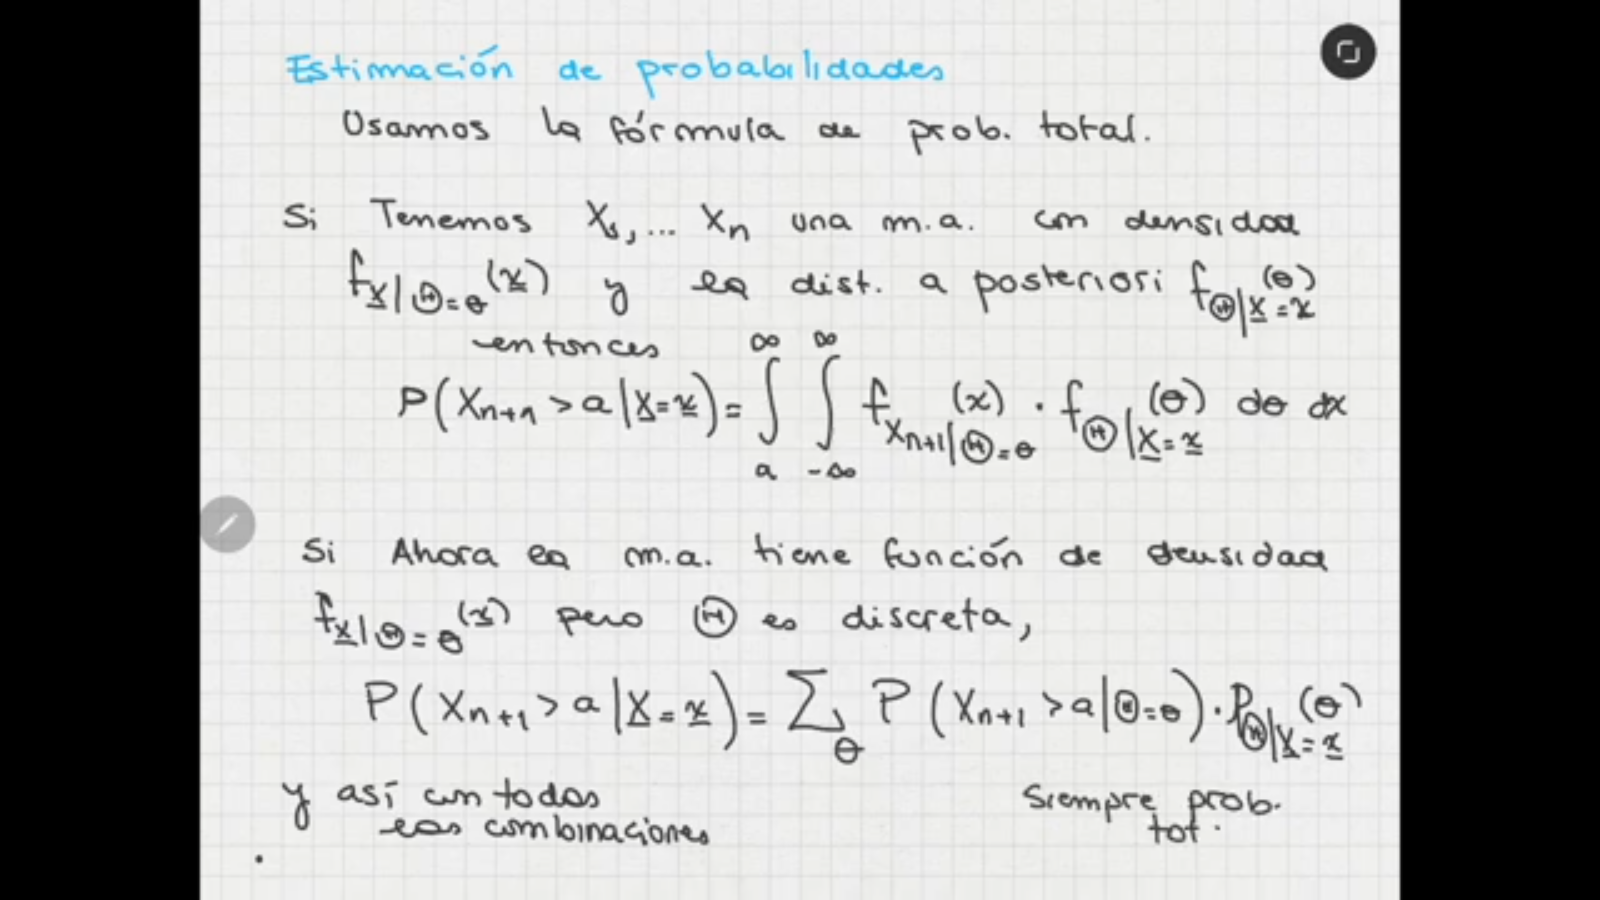 Estimación de probabilidades
Usamos la fórmula de prob. total.
Si Tenemos X₁, ... Xn una m.a. con densidad
f_X|Θ=θ (x) y la dist. a posteriori f_Θ|X=x (θ)
entonces
P(Xn+1 > a | X=x) = ∫_a^∞ ∫_-∞^∞ f_Xn+1|Θ=θ (x) · f_Θ|X=x (θ) dθ dx
Si Ahora la m.a. tiene función de densidad
f_X|Θ=θ (x) pero Θ es discreta,
P(Xn+1 > a | X=x) = Σ_θ P(Xn+1 > a | Θ=θ) · P_Θ|X=x (θ)
y así con todos
las combinaciones
Siempre prob.
tot.